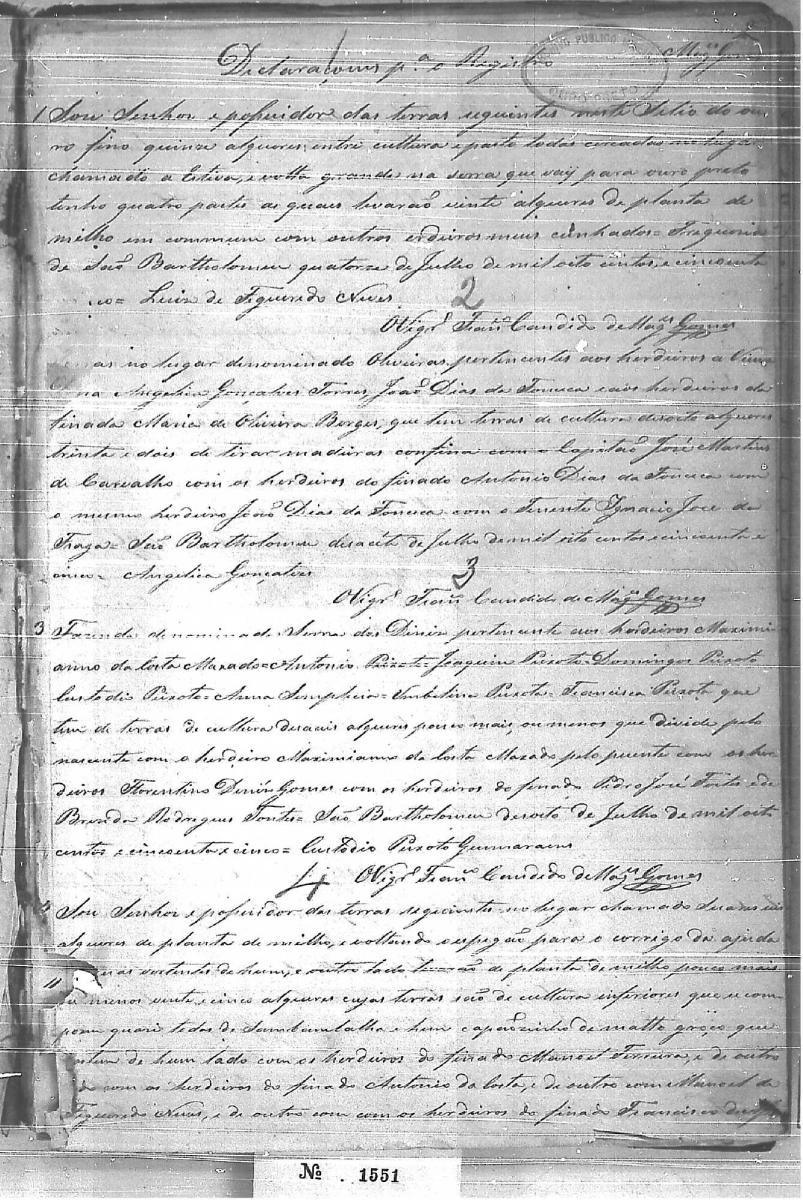 Declaraçoens p.ª o Registro
Mag.es Gomes
1 Sou Senhor e possuidor das terras seguintes neste Sitio do ou
ro fino quinze alqueres entre cultura e pasto todos cercados no lugar
chamado a Estiva, e volta grande na serra que vay para ouro preto
tenho quatro partes as quais levarão vinte alqueres de planta de
milho em commum com outros erdeiros meus cunhados = Freguesia
de Saõ Bartholomeu quatorze de Julho de mil oito centos, e cincoenta
co = Luiz de Figueredo Neves
2
O Vigr.º Fran.co Candido de Mag.es Gomes
as no lugar denominado Oliveiras, pertencentes aos herdeiros a Viuva
na Angelica Gonçalves Torres, João Dias da Fonseca e aos herdeiros da
finada Maria de Oliveira Borges, que tem terras de cultura desoito alqueres
trinta e dois de tirar madeiras confina com o Capitaõ José Martins
de Carvalho com os herdeiros do finado Antonio Dias da Fonseca com
o mesmo herdeiro João Dias da Fonseca com o Tenente Ignacio Joze da
Fraga = Saõ Bartholomeu desacete de Julho de mil oito centos e cincoenta e
cinco = Angelica Gonçalves
3
O Vigr.º Fran.co Candido de Mag.es Gomes
3 Fazenda denominada Serra dos Diniz pertencente aos herdeiros Maximi
anno da Costa Maxado = Antonio Pixote = Joaquim Pixoto = Domingos Pixoto
Custodio Pixoto = Anna Simplicia = Umbelina Pixota = Francisca Pixota que
tem de terras de cultura desaceis alqueres pouco mais, ou menos que divide pelo
nascente com o herdeiro Maximiamo da Costa Maxado pelo puente com os her
deiros Florentino Diniz Gomes com os herdeiros do finado Pedro José Fontes e de
Brenda Rodrigues Fontes = Saõ Bartholomeu desoito de Julho de mil oito
centos e cincoenta e cinco = Custodio Pixoto Guimarains
4
O Vigr.º Fran.co Candido de Mag.es Gomes
Sou Senhor e possuidor das terras seguintes no lugar chamado
alqueres de planta de milho, e voltando o espigão para o corrigo da ajuda
uas vertentes de hum, e outro lado levarão de planta de milho pouco mais
ou menos vinte, e cinco alqueres cujas terras são de cultura inferiores que se com
poem quazi todas de Sambambalha e hum capãozinho de matto groço que
de hum lado com os herdeiros do finado Manoel Ferreira, e de outro
do com os herdeiros do finado Antonio da Costa, e de outro com Manoel de
Figueredo Neves, e de outro com com os herdeiros do finado Francisco
Nº . 1551